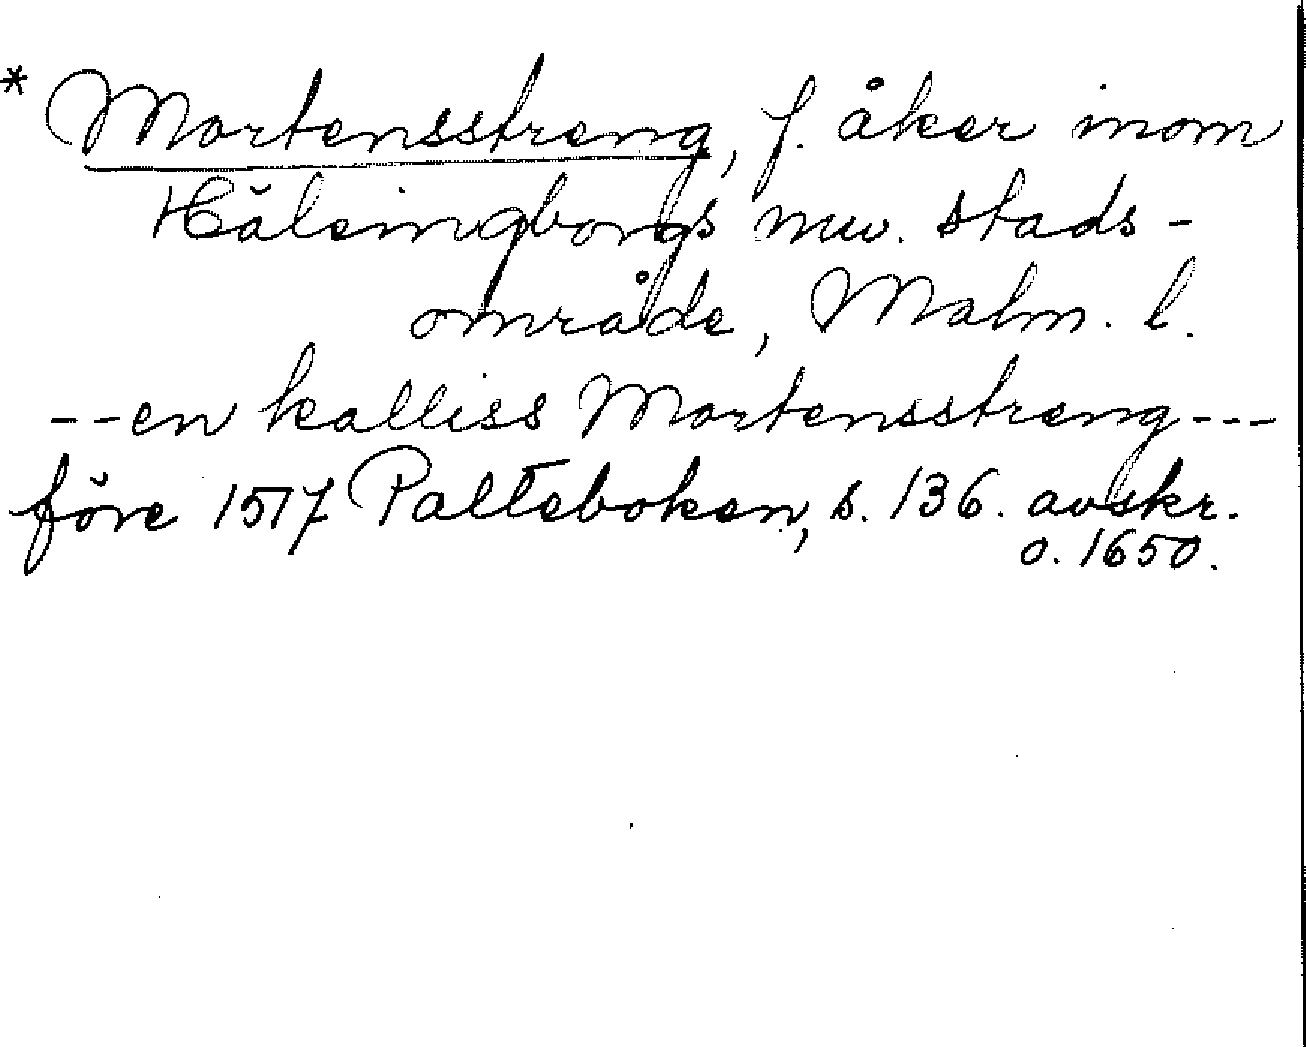 * Mortensstreng, f. åker inom
Hälsingborgs nuv. stads-
område, Malm. l.
--en kalliss Mortensstreng---
före 1517 Palteboken, s. 136. avskr.
o. 1650.